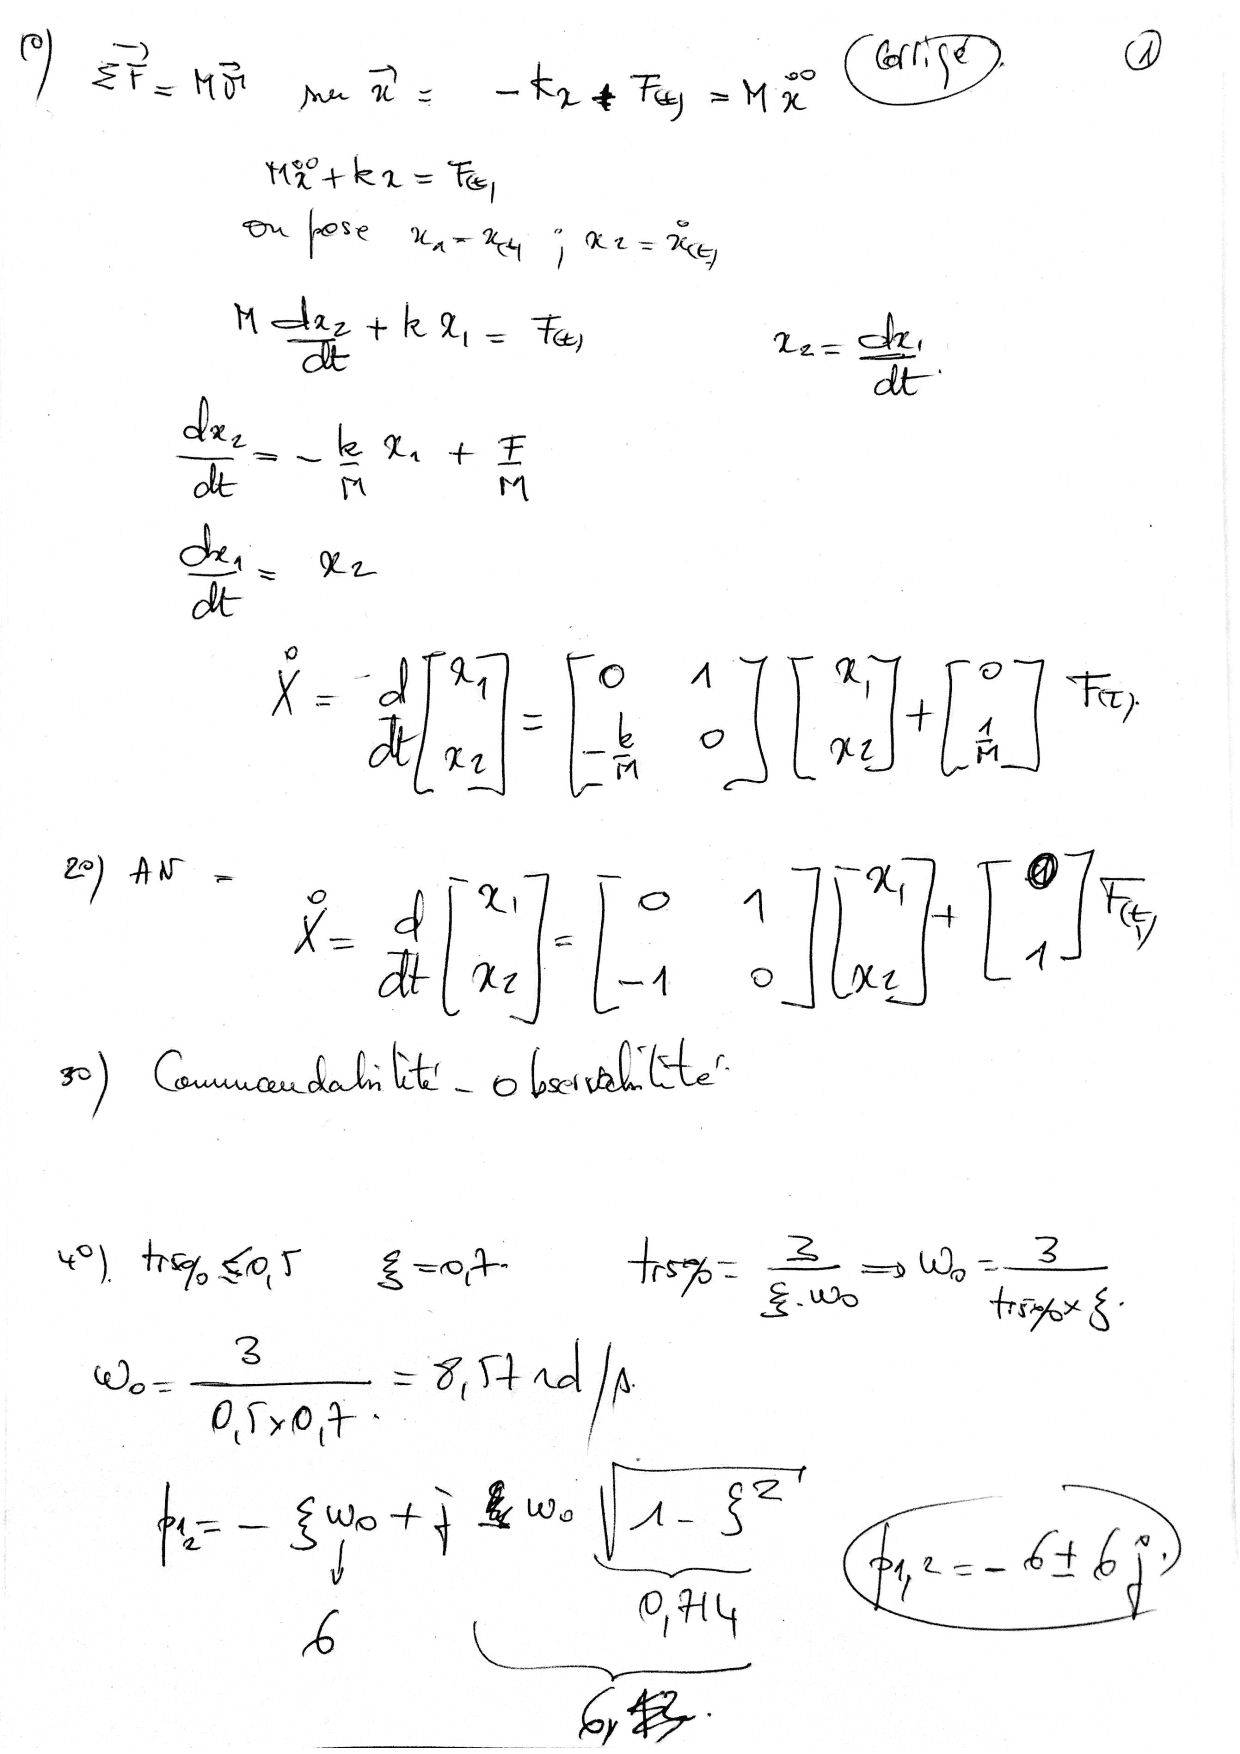 1°) ΣF⃗ = Mγ⃗ sur x⃗ = - kx + F(t) = M x°° Corrigé. ①
Mx°° + kx = F(t)
on pose x1 = x(t) ; x2 = x°(t)
M dx2/dt + k x1 = F(t) x2 = dx1/dt.
dx2/dt = - k/M x1 + F/M
dx1/dt = x2
X° = d/dt [x1 x2] = [0 1 -k/M 0] [x1 x2] + [0 1/M] F(t).
2°) AN =
X° = d/dt [x1 x2] = [0 1 -1 0] [x1 x2] + [0 1] F(t)
3°) Commandabilité - observabilité.
4°). tr5% ≤ 0,5 ξ = 0,7. tr5% = 3/ξ.ω0 ⇒ ω0 = 3/tr5% × ξ.
ω0 = 3/0,5×0,7. = 8,57 rd/s.
p1,2 = - ξω0 + j ω0 √1-ξ² p1,2 = - 6 ± 6j.
6 0,714
6,